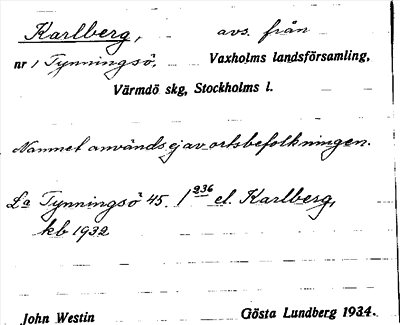 Karlberg, avs. från
nr 1 Tynningsö, Vaxholms landsförsamling,
Värmdö skg, Stockholms l.
Namnet används ej av ortsbefolkningen.
La Tynningsö 45. 1 236 el. Karlberg,
kb 1932
John Westin Gösta Lundberg 1934.